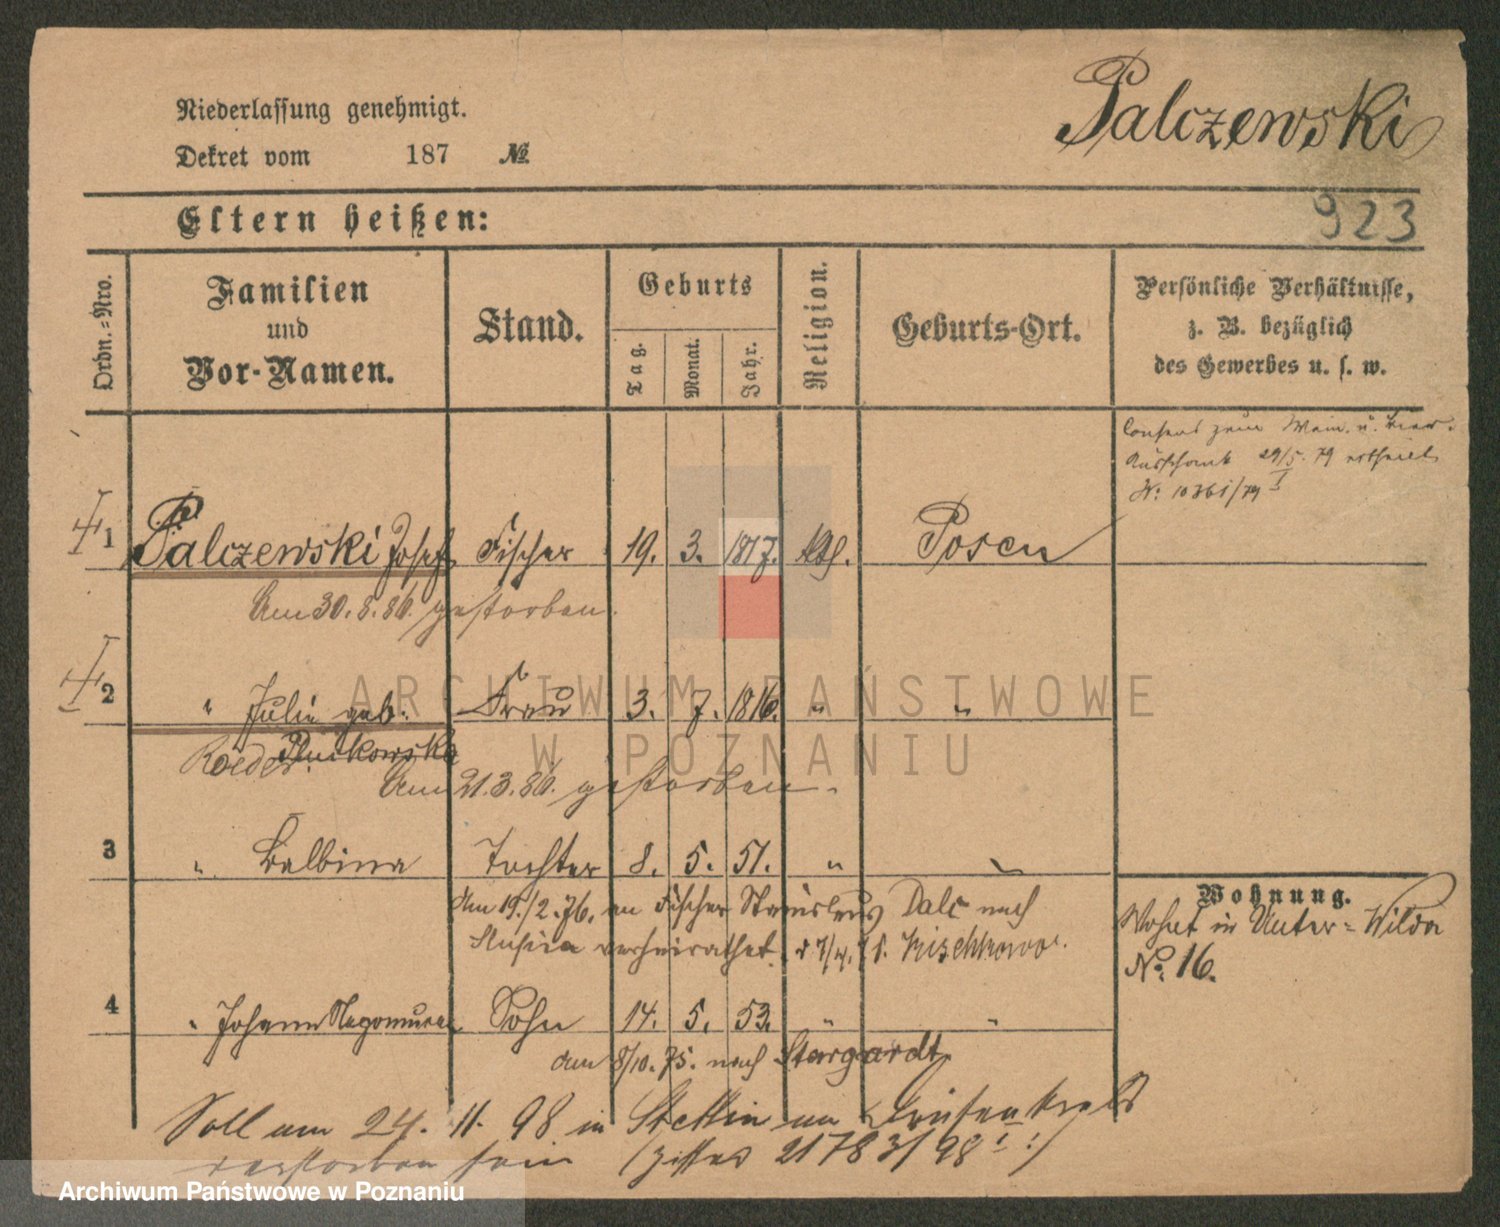 Niederlassung genehmigt.
Palczewski
Dekret vom 187 №
Eltern heißen:
923
Ordn.-Nro.
Familien
und
Vor-Namen.
Stand.
Geburts
Tag.
Monat.
Jahr.
Religion.
Geburts-Ort.
Persönliche Verhältnisse,
z. B. bezüglich
des Gewerbes u. s. w.
Consens zum Wein. u. Bier.
Ausschank 29/5. 79 ertheilt
N: 10361/79 I
1 Palczewski Josef Fischer 19. 3. 1817. kth. Posen
Am 30.8.86. gestorben.
2 " Julie geb. Frau 3. 7. 1816. " "
Roeder.
Am 21.3.86. gestorben.
3 " Balbina Tochter 8. 5. 51. " "
Wohnung.
Am 19./2.76. an Fischer Stanislaus Dalc nach
verheirathet.
Wohnt in Unter-Wilda
No. 16.
4 " Johann Sohn 14. 5. 53. " "
am 8/10.75. nach Stargardt.
Soll am 24.11.98 in Stettin am
verstorben sein 21783/98 I
ARCHIWUM PAŃSTWOWE
W POZNANIU
Archiwum Państwowe w Poznaniu